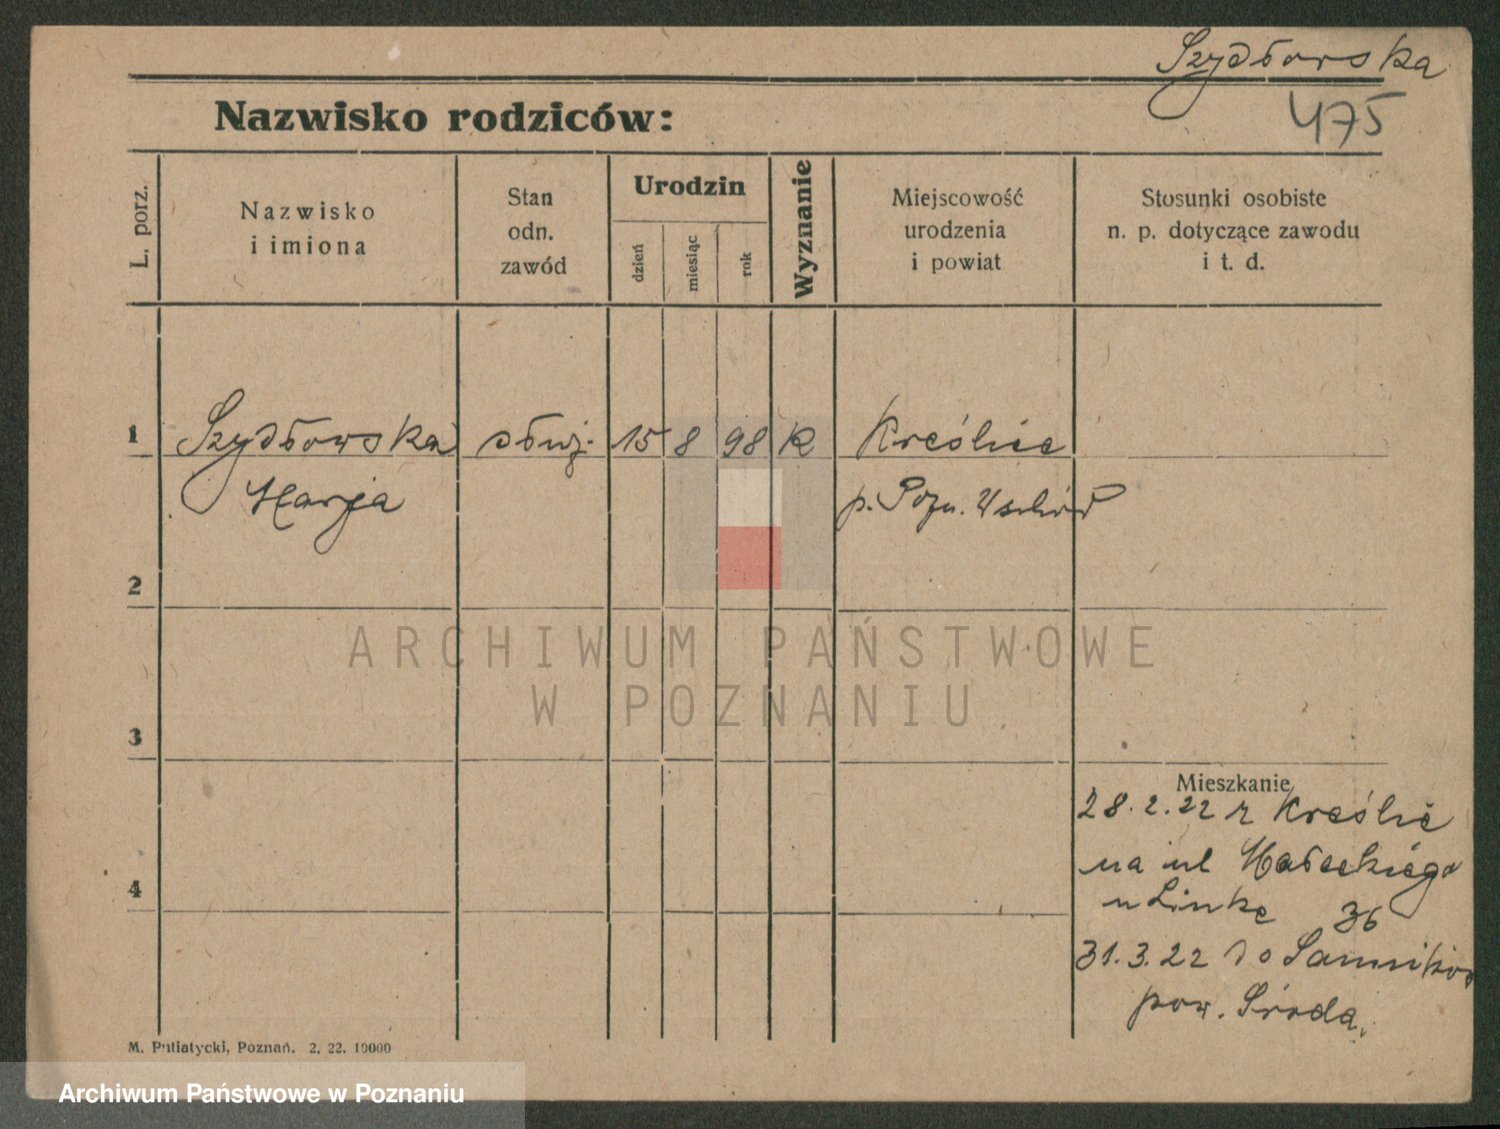 Szydłowska
475
Nazwisko rodziców:
L. porz.
Nazwisko
i imiona
Stan
odn.
zawód
Urodzin
dzień
miesiąc
rok
Wyznanie
Miejscowość
urodzenia
i powiat
Stosunki osobiste
n. p. dotyczące zawodu
i t. d.
1
Szydłowska
służ.
15
8
98
K
Kreślice
Marja
p. Pozn. Wschód
2
ARCHIWUM PAŃSTWOWE
W POZNANIU
3
Mieszkanie
28.2.22 z Kreślic
na ul Małeckiego
u Linke 36
4
31.3.22 do
pow. Środa.
M. Putiatycki, Poznań. 2. 22. 10000
Archiwum Państwowe w Poznaniu